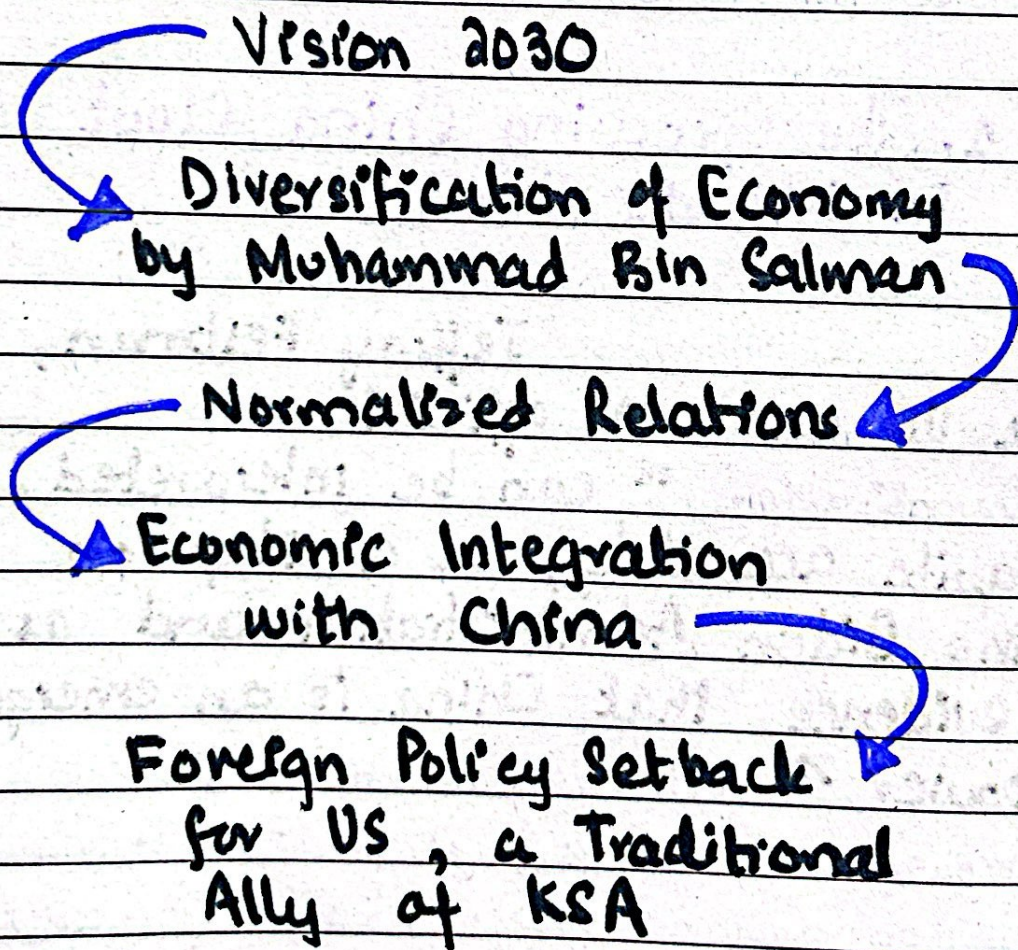 Vision 2030
Diversification of Economy
by Muhammad Bin Salman
Normalized Relations
Economic Integration
with China
Foreign Policy Setback
for US, a Traditional
Ally of KSA